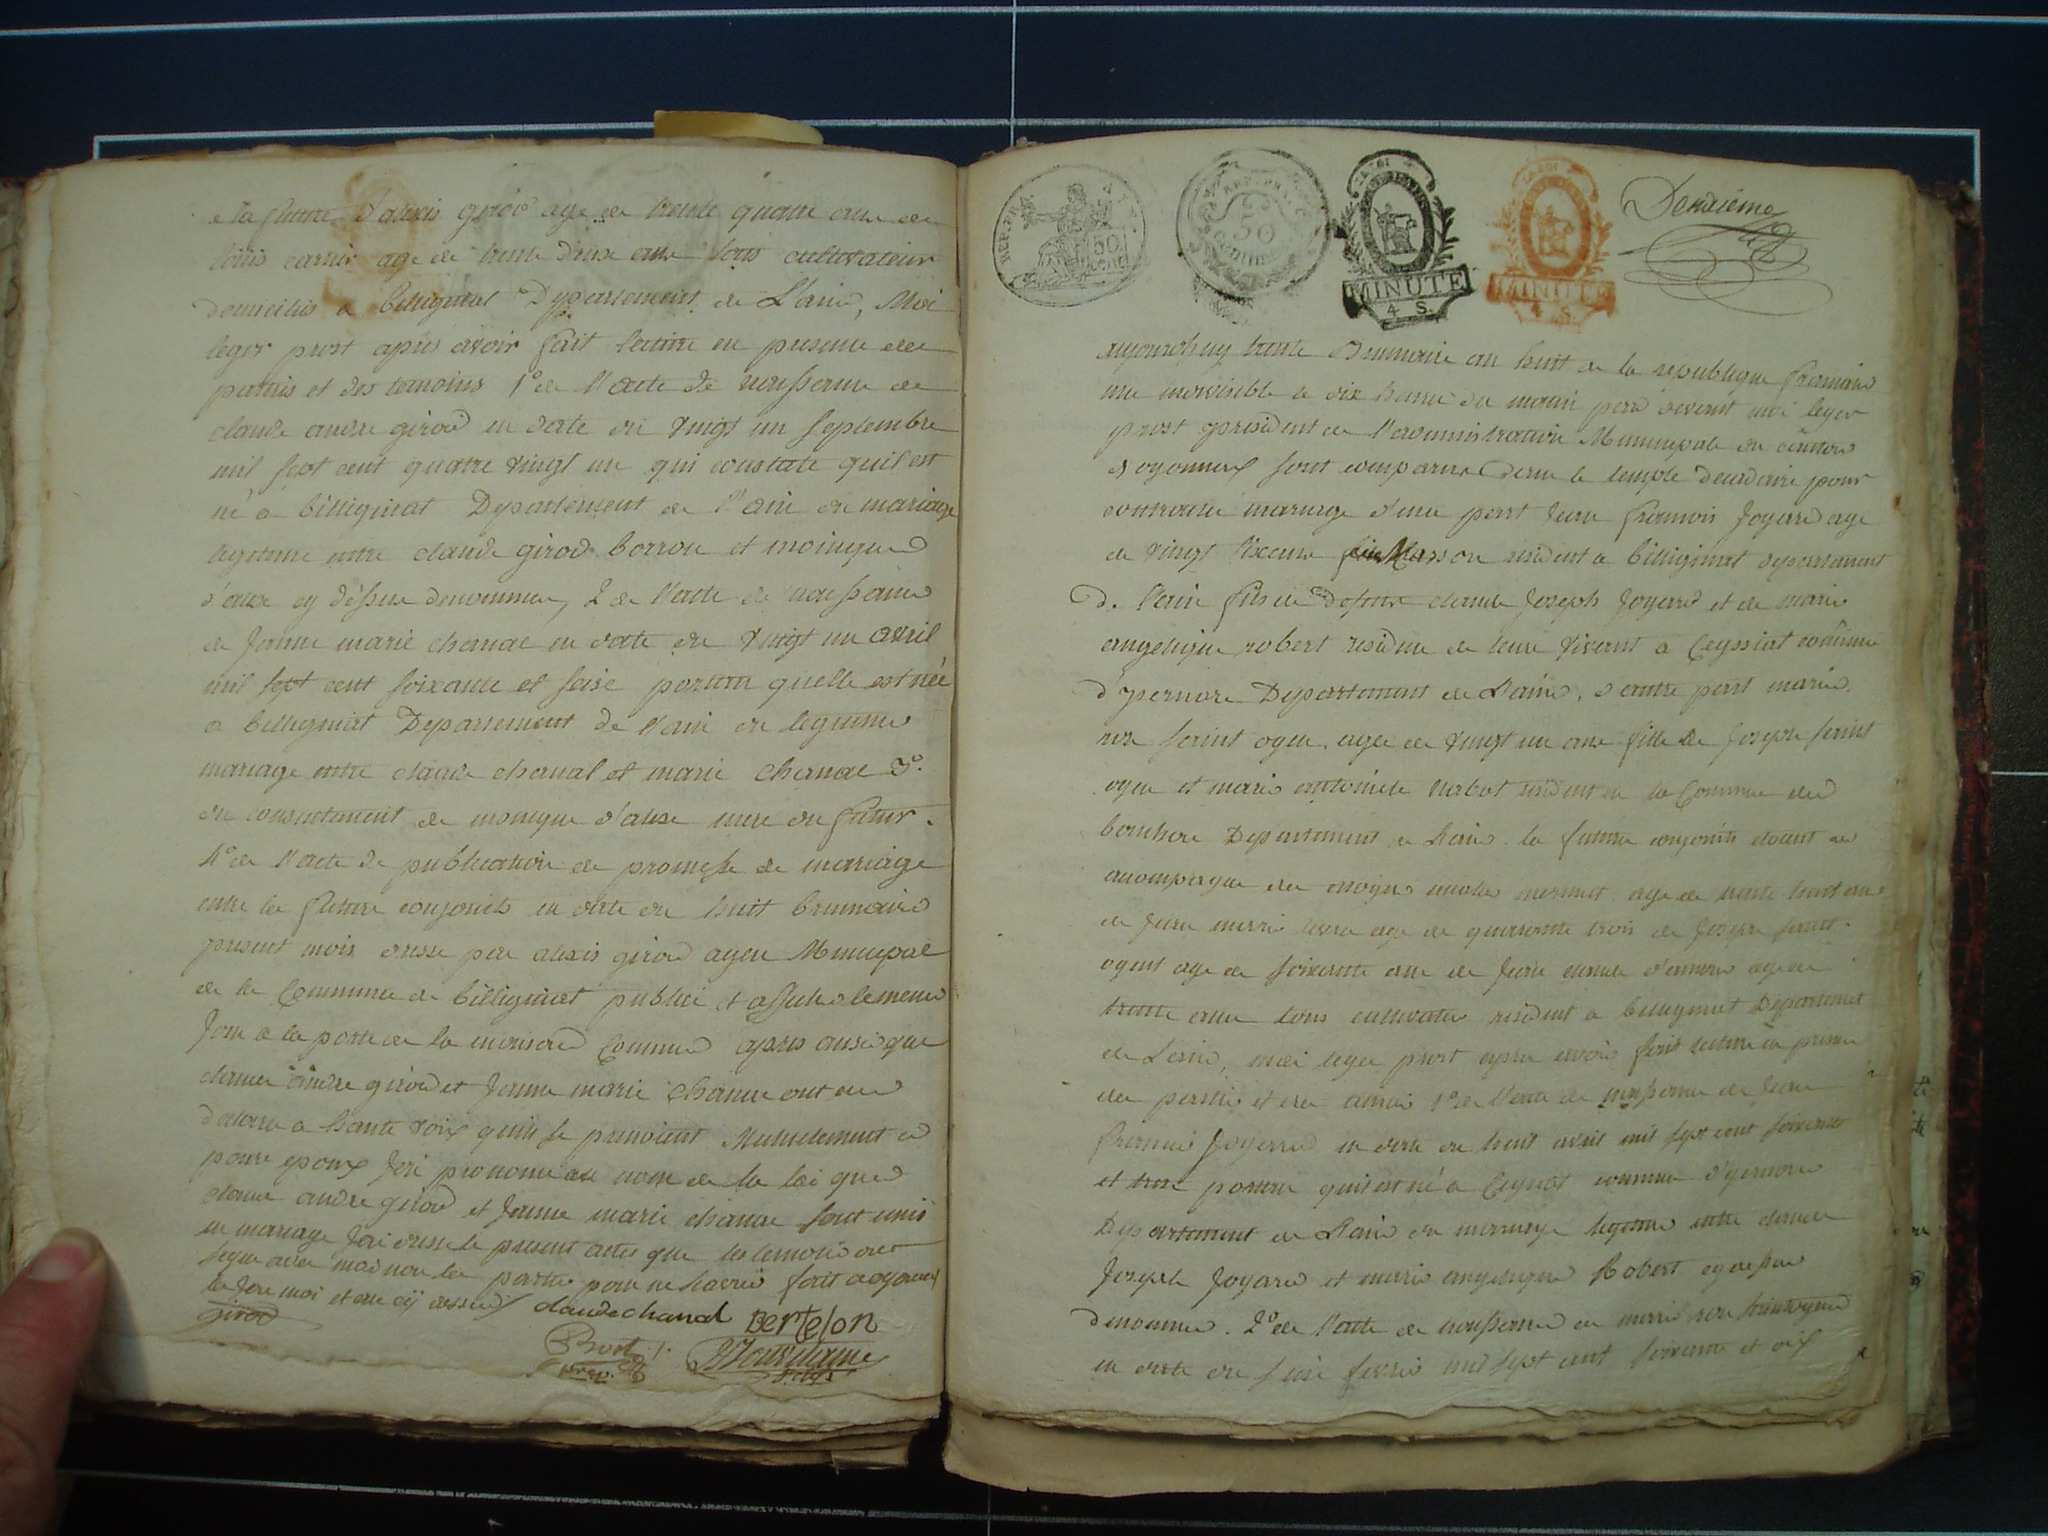 de trente quatre ans de
louis carrier agé de trente deux ans tous cultivateur
domicilies a billigniat Departement de L'ain, Moi
leger prost apres avoir fait lecture en presence des
parties et des temoins 1° de l'acte de naissance de
claude andre girod en date du vingt un septembre
mil sept cent quatre vingt un qui constate quil est
né a billigniat Departement de l'ain du mariage
legitime entre claude girod borron et
cy dessus denommes, 2 de l'acte de naissance
de Jeanne marie chanal en date du vingt un avril
mil sept cent soixante et seise portant quelle est née
a billigniat Departement de l'ain du legitime
mariage entre claude chanal et marie chanal 3°.
du consentement de monique d'alex mere du futur.
4° de l'acte de publication de promesse de mariage
entre les futurs conjoints en date du huit brumaire
present mois dressé par alexis girod agent Municipal
de la Commune de billigniat publié et affiché le meme
Jour a la porte de la maison Commune apres aussi que
claude andre girod et Jeanne marie chanal ont
declaré a haute voix quils se prenoient Mutuelement
pour epoux Jai prononcé au nom de la loi que
claude andre girod et Jeanne marie chanal sont unis
en mariage Jai dressé le present acte que les temoins ont
signé avec moi non les parties pour ne savoir fait a oyonnax
le Jour mois et an cy dessus claude chanal Bertelon
girod
Prost
MINUTE
4 S.
MINUTE
4 S.
50
Deuxieme
aujourdhuy trente Brumaire an huit de la republique francaise
une indivisible a dix heures du matin par devant moi leger
prost president de l'administration Municipale du canton
d oyonnax sont comparus dans le temple decadaire pour
contracter mariage d'une part Jean francois Joyard age
de vingt Masson resident a billigniat departement
de l'ain fils de defunt claude Joseph Joyard et de marie
angelique robert residens de leur vivant a Ceyssiat commune
d'yzernore Departement de L'ain, d autre part marie
saint oyen agée de vingt un ans fille de Joseph saint
oyen et marie antoinete residents en la Commune de
Departement de L'ain. les futurs conjoints etant
accompagnés des agé de trente huit ans
de Jean marie agé de quarante trois de Joseph saint
oyent agé de soixante ans de Jean claude agé de
trente ans tous cultivateurs residents a billigniat Departement
de L'ain, moi leger prost apres avoir fait lecture en presence
des parties et des temoins 1° de l'acte de naissance de Jean
francois Joyard en date du huit avril mil sept cent soixante
et portant quil est né a Ceyssiat commune d'yzernore
Departement de L'ain du mariage legitime entre claude
Joseph Joyard et marie angelique Robert cy dessus
denommes. 2° de l'acte de naissance de marie saint oyen
en date du fevrier mil sept cent soixante et dix